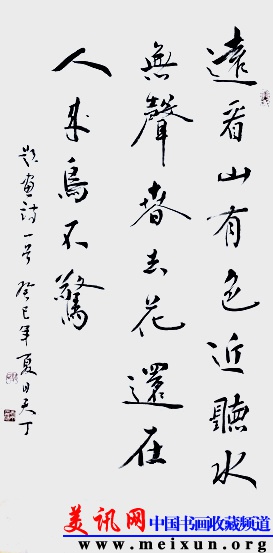 遠看山有色近聽水
無聲春去花還在
人来鳥不驚
題畫詩一首 癸巳年夏月天丁
美讯网 中国书画收藏频道
www.meixun.org